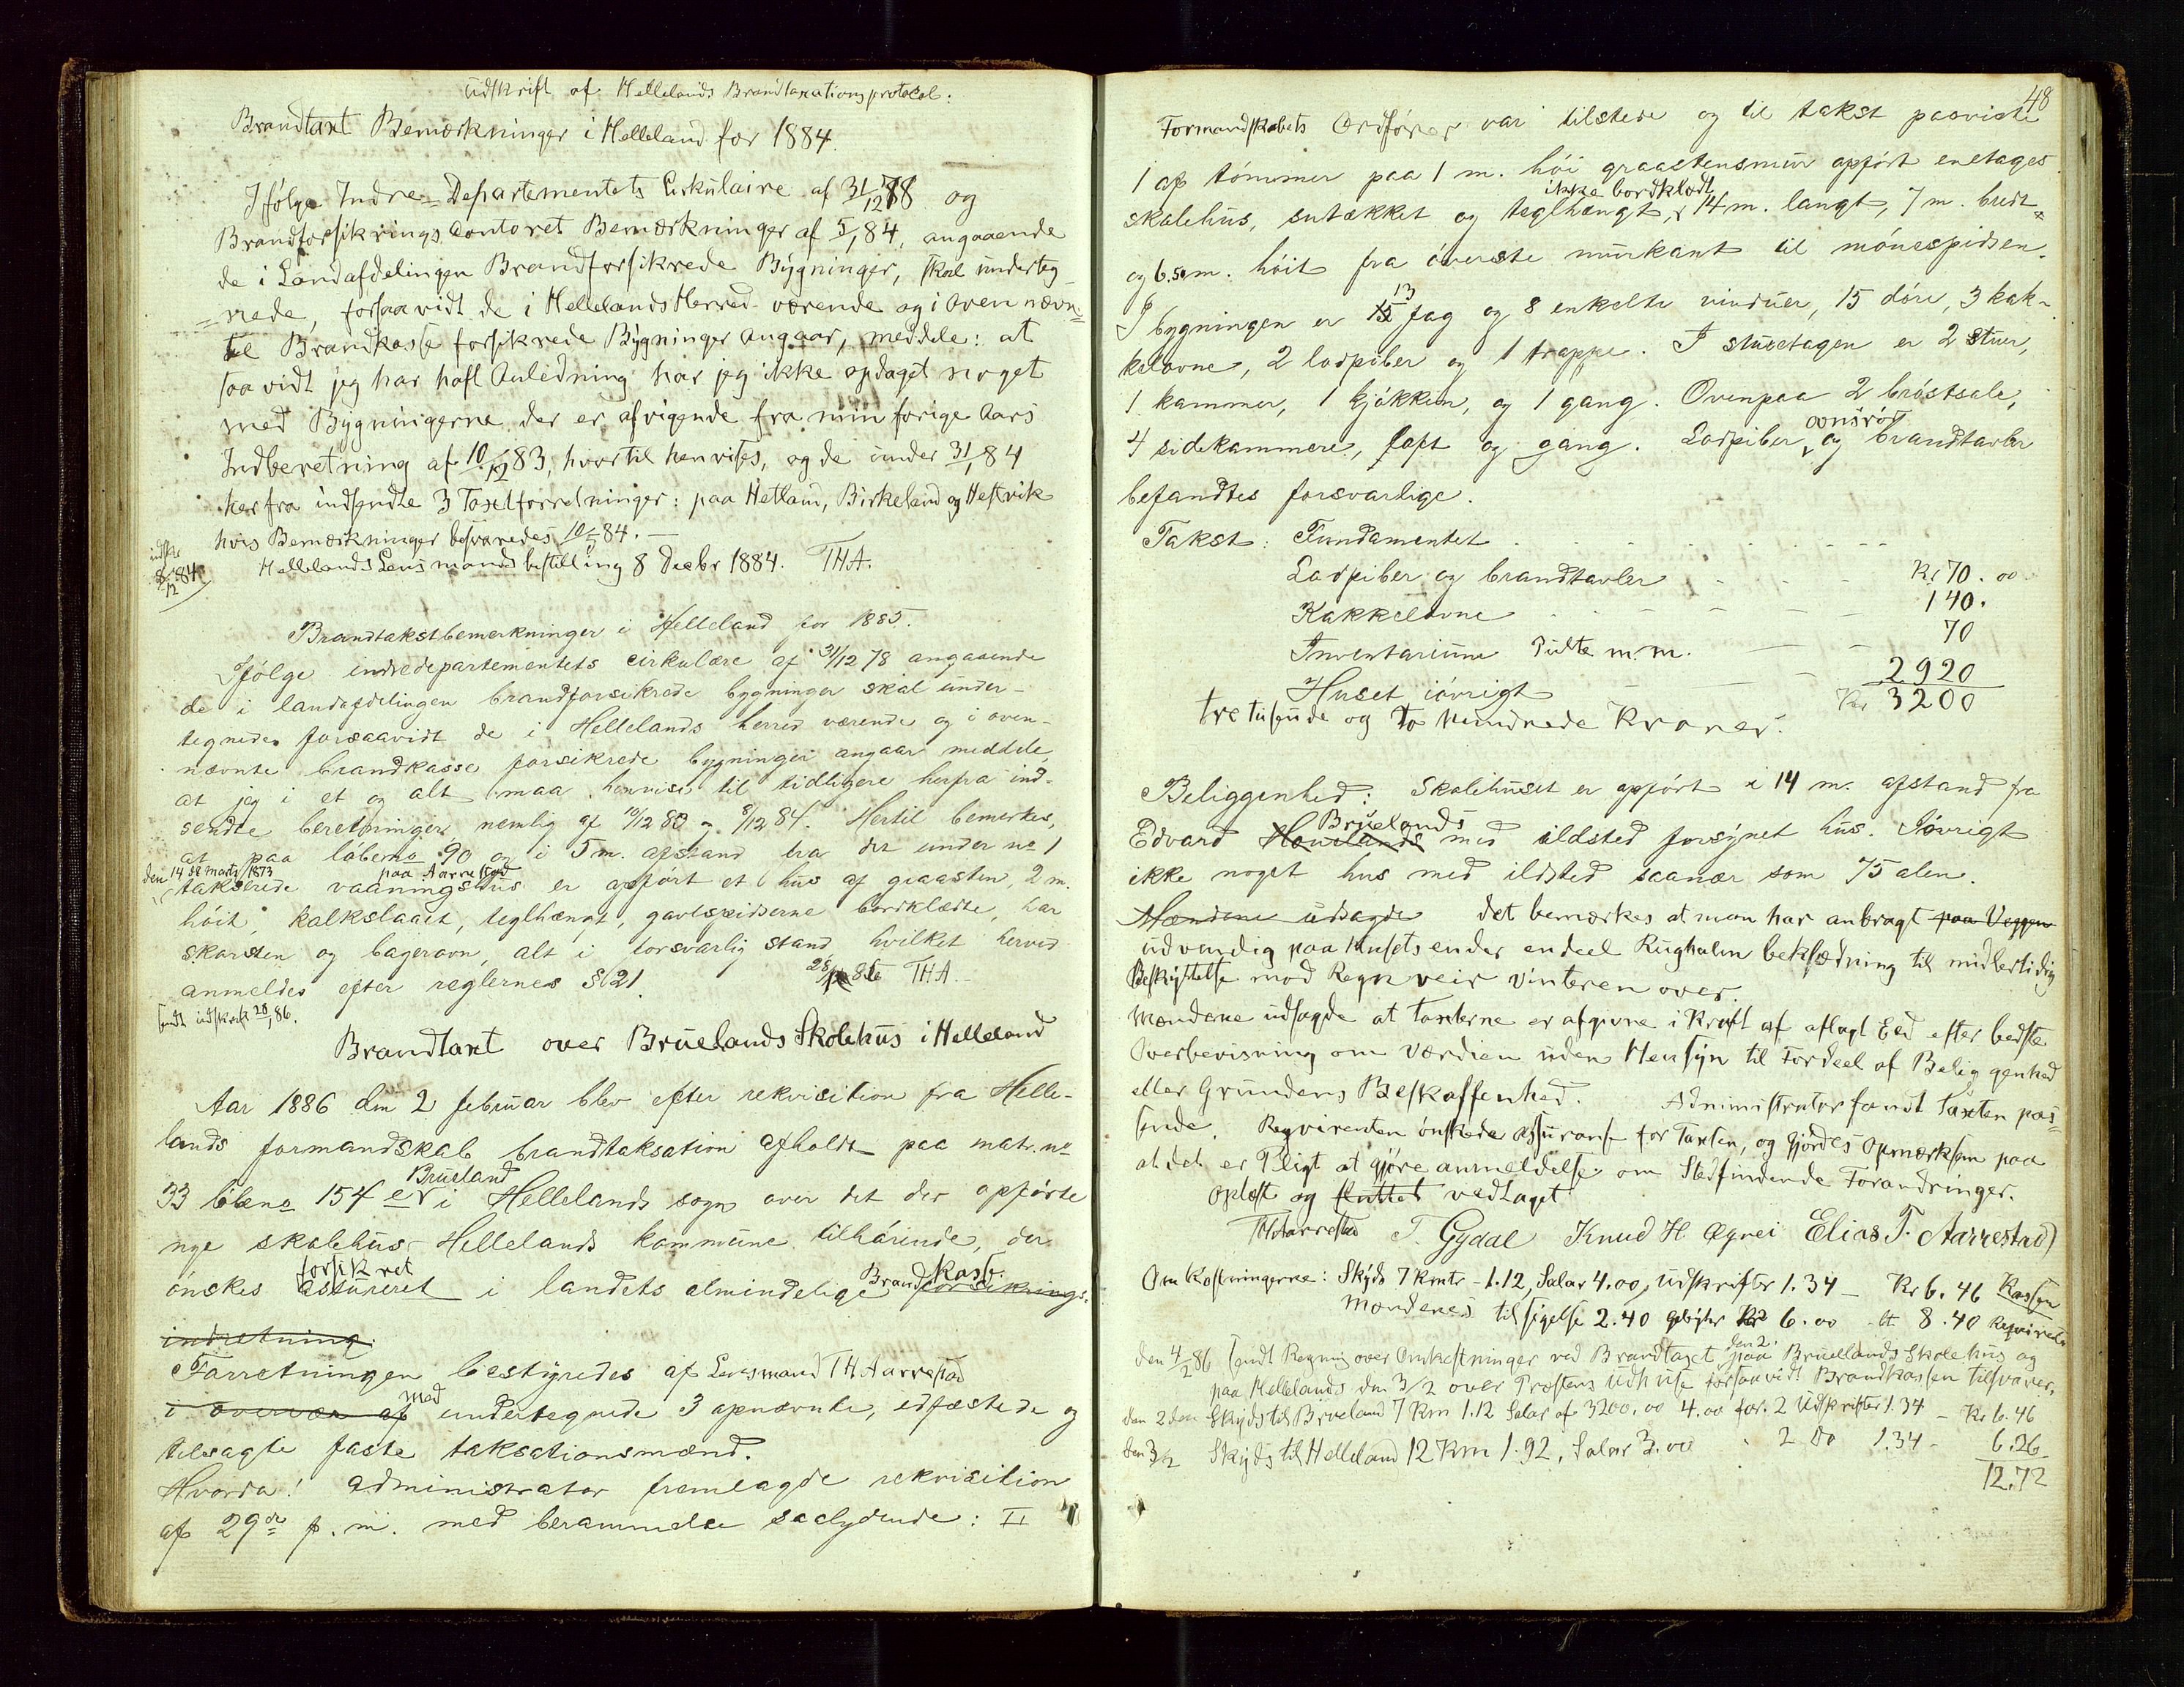 Udskrift af Hellelands Brandtaxationsprotocol:
Brandtaxt Bemærkninger i Helleland for 1884.
Ifölge Indre=Departementets Cirkulaire af 31/12 78 og
Brandforsikrings Contoret Bemærkninger af 5/1 84, angaaende
de i Landafdelingen Brandforsikrede Bygninger, skal underteg
=nede, forsaavidt de i Hellelands Herred værende og i Oven nævn=
te Brandkasse forsikrede Bygninger angaar, meddele: at
saa vidt jeg har haft Anledning har jeg ikke opdaget noget
med Bygningerne der er afvigende fra min forige Aars
Indberetning af 10/12 83, hvortil henvises, og de under 31/1 84
herfra indsendte 3 Taxtforretninger: paa Hetland, Birkeland og Hestvik
hvis Bemærkninger besvaredes 10/5 84. —
Hellelands Lensmandsbestilling 8 Decbr 1884. THA.
8/12 84
Brandtakstbemerkninger i Helleland for 1885.
Ifölge indredepartementets cirkulære af 31/12 78 angaaende
de i landafdelingen brandforsikrede bygninger skal under-
tegnede, forsaavidt de i Hellelands herred værende og i oven-
nævnte brandkasse forsikrede bygninger angaar meddele,
at jeg i et og alt maa henvise til tidligere herfra ind-
sendte beretninger nemlig af 10/12 83 og 8/12 84. Hertil bemerkes,
at paa löbeno 90 og i 5 m. afstand fra der under no 1
den 14 de marts 1873 paa Aarrestad
takserede vaaningshus er opfört et hus af graasten, 2 m.
höit, kalkslaaet, teglhængt, gavlspidserne bordklædte, har
skorsten og bagerovn, alt i forsvarlig stand hvilket herved
anmeldes efter reglernes § 21. 28/1 86 THA.
sendt udskrift 28/1 86.
Brandtaxt over Bruelands Skolehus i Helleland
Aar 1886 den 2 februar blev efter rekvisition fra Helle-
lands formandskab brandtaksation afholdt paa matr. no
Brueland
33 löbeno 154 er i Hellelands sogn over det der opförte
nye skolehus Hellelands kommune tilhörende, der
forsikret Brandkasse
önskes assureret i landets almindelige forsiknings.
indretning.
Forretningen bestyredes af Lensmand TH Aarrestad
med
i overvær af undertegnede 3 opnævnte, edfæstede og
tilsagte faste taksationsmænd.
Hvorda! Administrator fremlagde rekvisition
af 29de f. m. med berammelse saalydende: II
48
Formandskabets Ordförer var tilstede og til takst paaviste
1 af tömmer paa 1 m. höi graastensmur opfört enetages
ikke bordklædt
skolehus, sutækket og teglhængt, 14 m. langt, 7 m. bredt
og 6.50 m. höit fra överste murkant til mönespidsen.
13
I bygningen er 15 fag og 8 enkelte vinduer, 15 döre, 3 kak-
kelovne, 2 lodpiber og 1 trappe. I stueetagen er 2 stuer,
1 kammer, 1 kjökken, og 1 gang. Ovenpaa 2 bröstsale,
ovnsrör
4 sidekammere, loft og gang. Lodpiber, og brandtavler
befandtes forsvarlige.
Takst: Fundamentet
Lodpiber og brandtavler Kr 70.00
Kakkelovne 140.
Inventarium Pulte m. m. 70
Huset iövrigt 2920
Kr 3200
Tre tusende og To Hundrede Kroner.
Beliggenhed: Skolehuset er opfört i 14 m. afstand fra
Bruelands
Edvard Hovelands med ildsted forsynet hus. Iövrigt
ikke noget hus med ildsted saanær som 75 alen.
Mændene udsagde det bemærkes at man har anbragt paa Veggen
udvendig paa Husets ender endeel Rughalm beklædning til midlertidig
Beskyttelse mod Regn veir Vinteren over.
Mændene udsagde at Taxterne er afgivne i Kraft af aflagt Eed efter bedste
Overbevisning om Værdien uden Hensyn til Fordeel af Beliggenhed
eller Grundens Beskaffenhed. Administrator fandt Taxten pas=
sende. Reqvirenten önskede Assuranse for Taxten, og gjordes opmærksom paa
at det er Pligt at gjöre anmeldelse om Stedfindende Forandringer.
oplæst og sluttet vedtaget
THAarrestad T. Gydal Knud H Øgrei Elias T. Aarrestad
Omkostningerne: Skyds 7 kmtr - 1.12, Salar 4.00, udskrifter 1.34 — Kr 6.46 Kassen
Mændenes tilsigelse 2.40 gebyhr Kr 6.00 — 8.40 Reqvirent
den 2.
den 4/2 86 sendt Regning over Omkostninger ved Brandtaxt paa Bruelands Skolehus og
paa Hellelands den 3/2 over Præstens Udhuse forsaavidt Brandkassen tilsvarer.
den 2 den Skyds til Brueland 7 Km 1.12 Salar af 3200.00 4.00 for. 2 Udskrifter 1.34 — Kr 6.46
den 3/2 Skyds til Helleland 12 Km 1.92, Salar 3.00 2 do 1.34 — 6.26
12.72